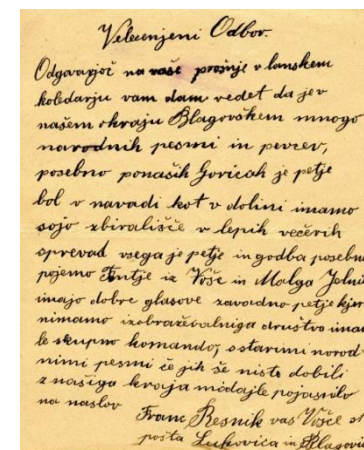 Velecenjeni Odbor.
Odgovarjoč na vaše prošnje v lanskem
koledarju vam dam vedet da je v
našem okraju Blagovškem mnogo
narodnih pesmi in pevcev,
posebno ponaših Goricah je petje
bol v navadi kot v dolini imamo
sojo zbirališče v lepih večerih
sprevad vsega je petje in godba posebno
pojemo Fantje iz Vošc in
imajo dobre glasove zavoedno petje kjer
nimamo izobraževalniga društvo imamo
le skupno komando, s starimi norod
nimi pesmi če jih še niste dobili
z našiga kraja midajle pojasnilo
na naslov
Franc Resnik vas Vošce
pošta Lukovica in Blagovica